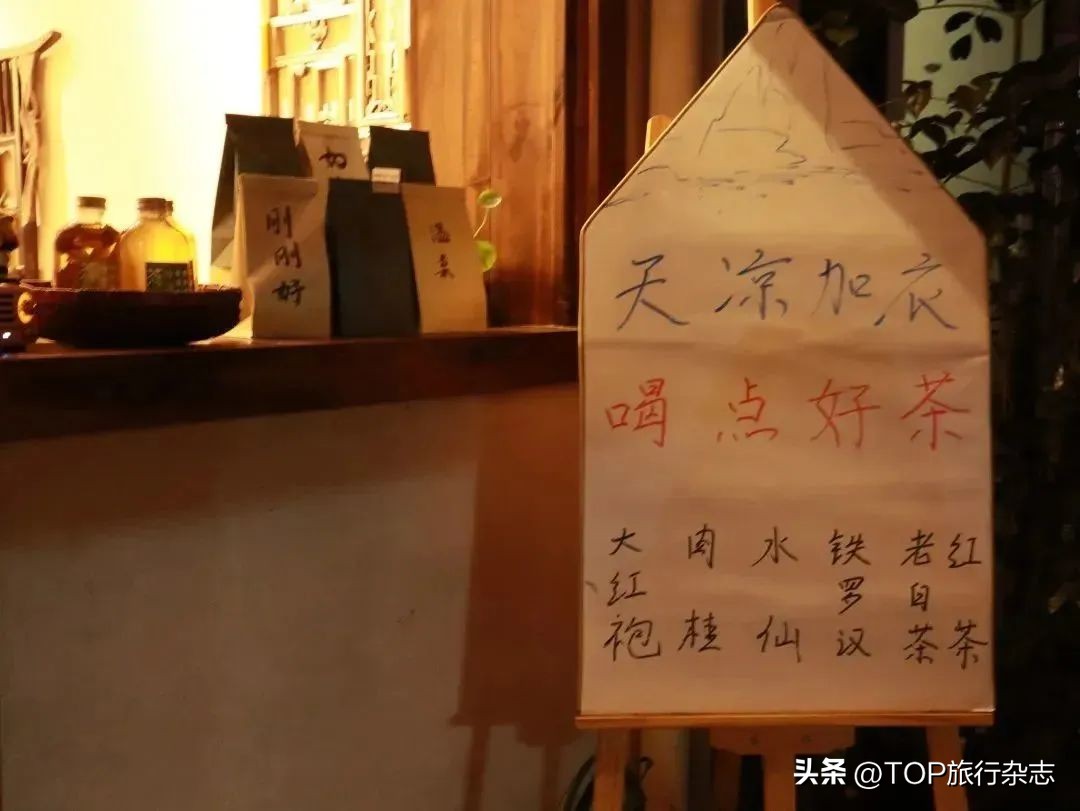 天凉加衣
喝点好茶
大红袍
肉桂
水仙
铁罗汉
老白茶
红茶
刚刚好
如
头条 @TOP旅行杂志